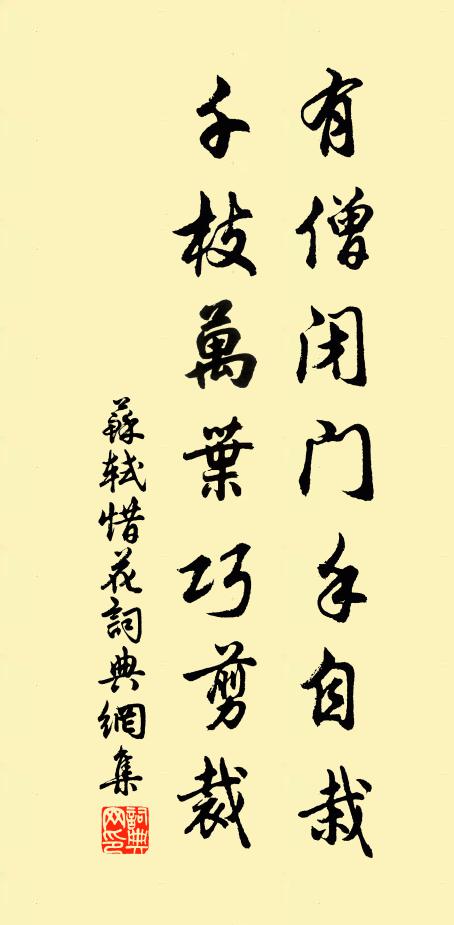 有僧闭门手自栽
千枝萬葉巧剪裁
蘇軾惜花詞典網集
詞典网印